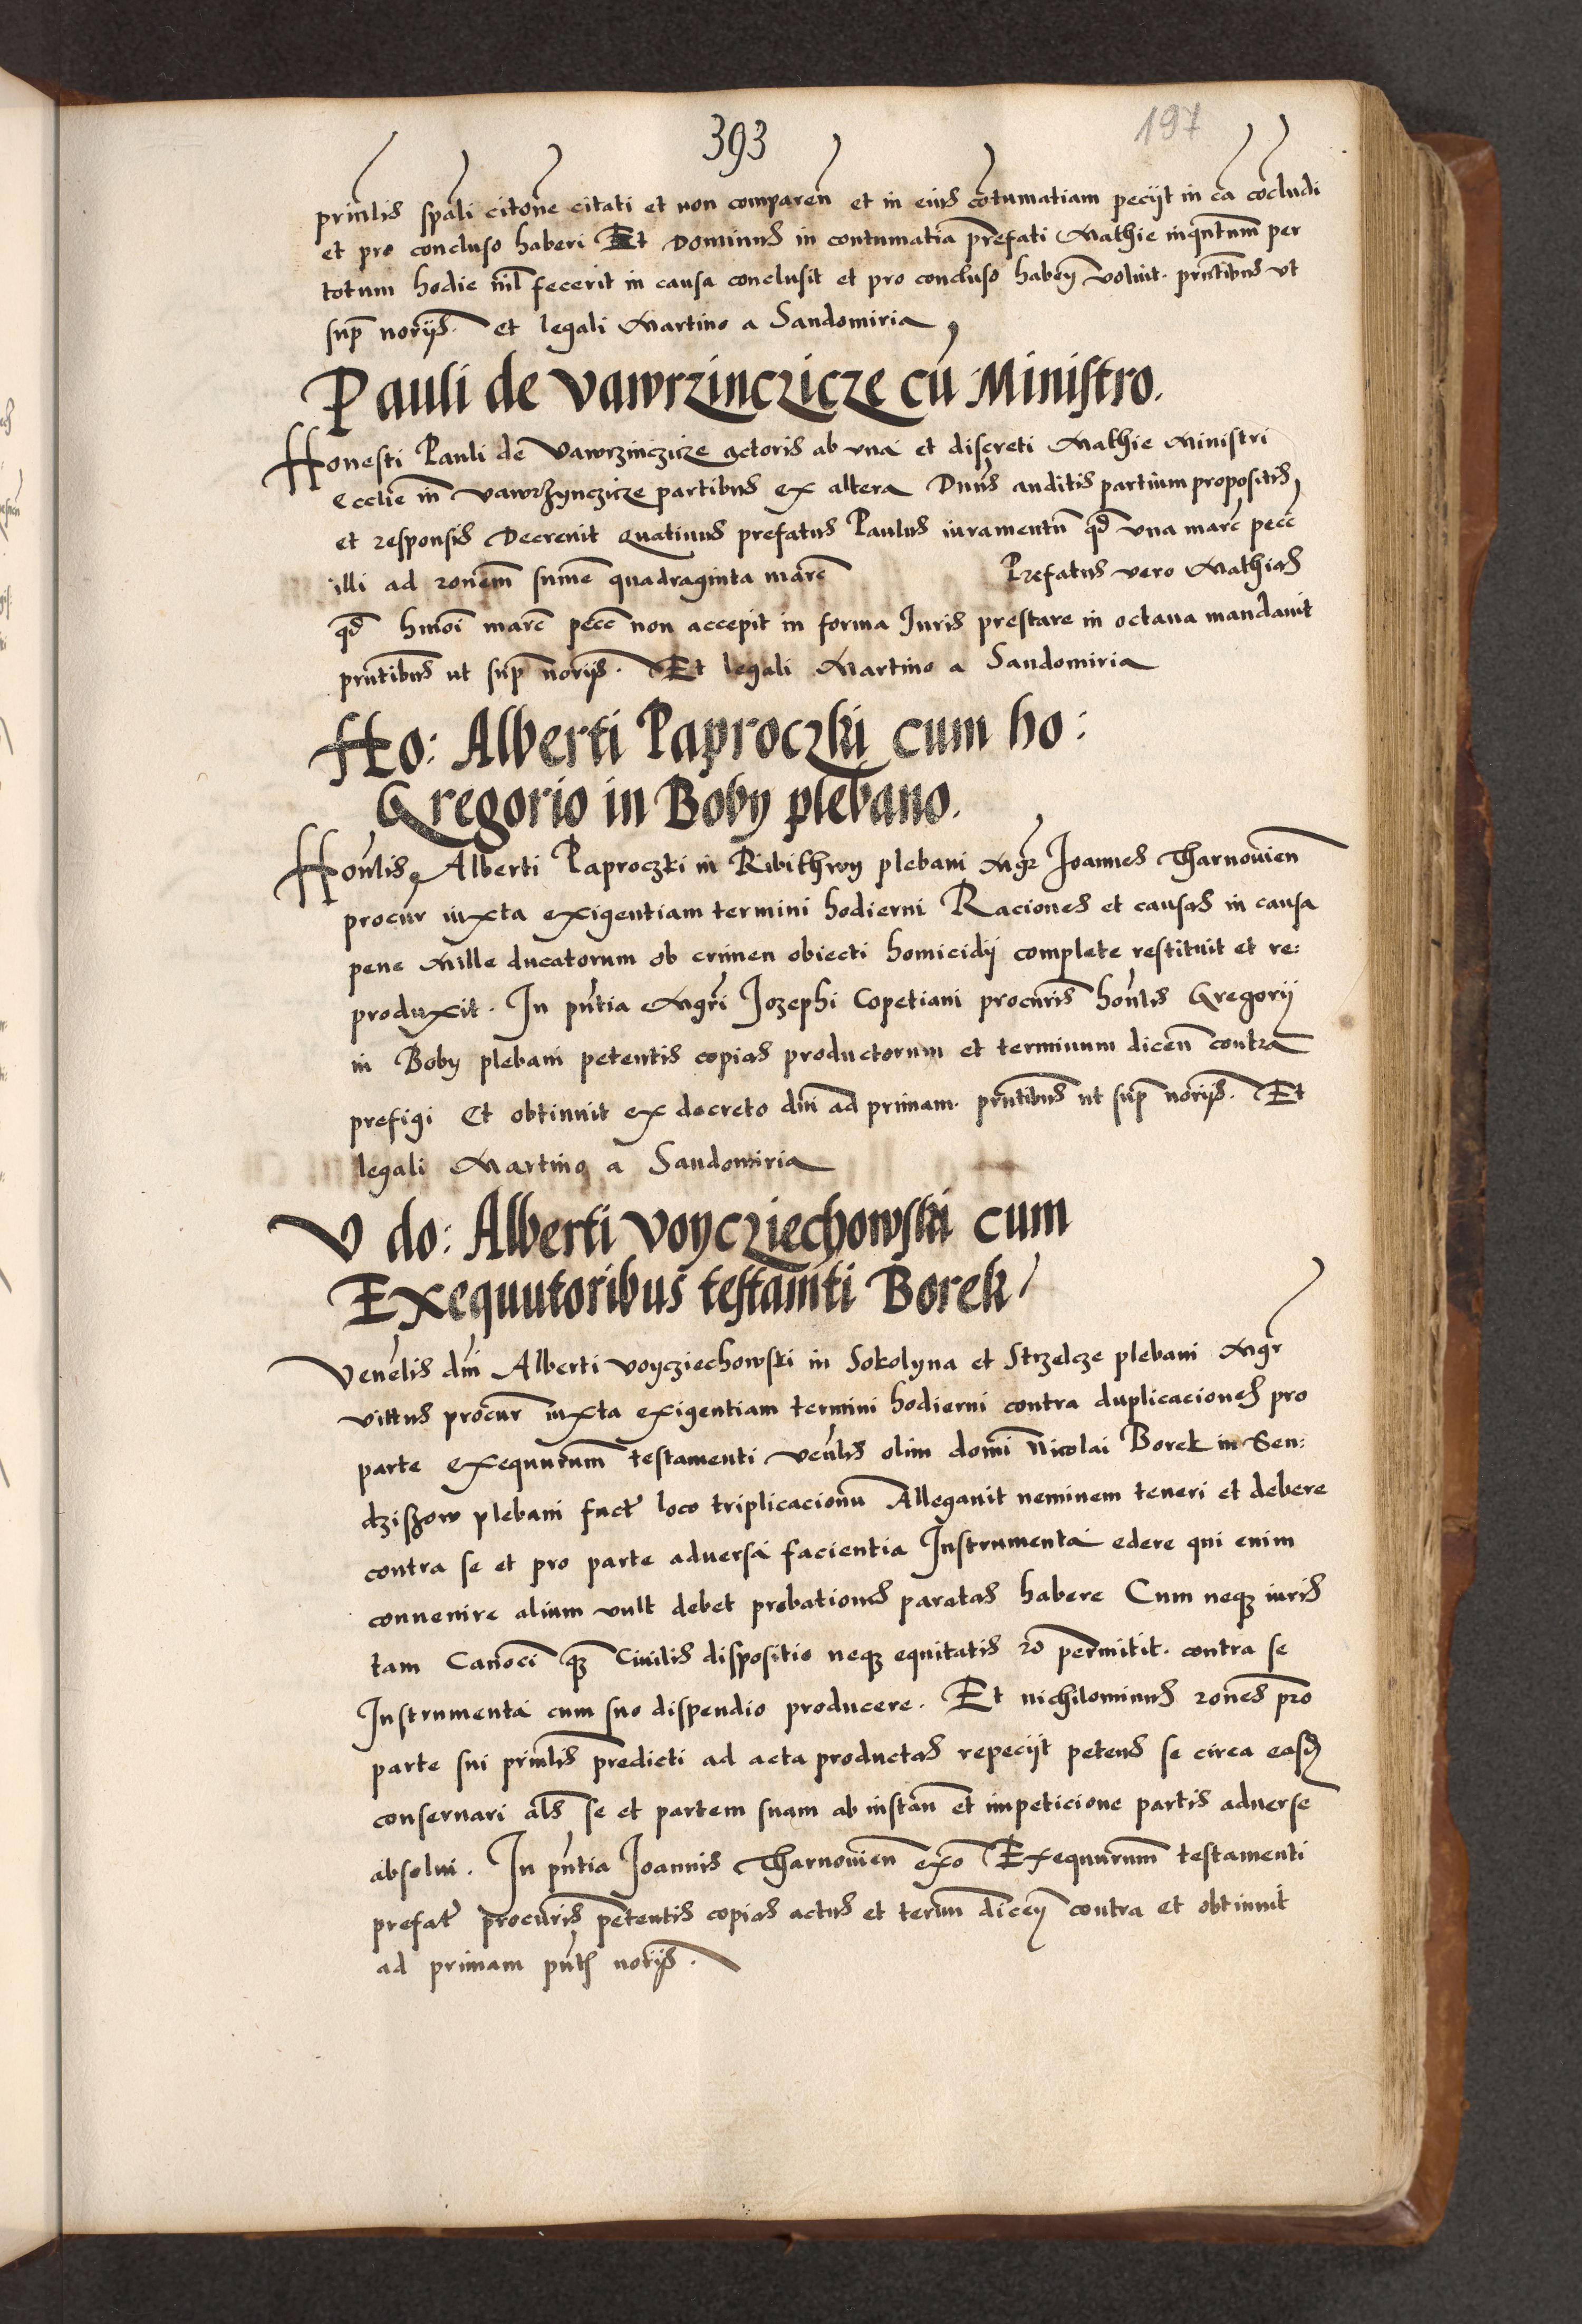 393
197
prin̄lis sp̄ali citōne citati et non comparen̄ et in eius cōtumatiam peciit in cā cōcludi
et pro concluso haberi Et Dominus in contumatia prefati Mathie inqn̄tum per
totum hodie nil fecerit in causa conclusit et pro concluso habery voluit. pn̄tibus vt
sup̄ noriis. et legali Martino a Sandomiria
Pauli de Vawrzinczicze cū Ministro.
Honesti Pauli de Vawrzinczicze actoris ab vna et discreti Mathie Ministri
Ecclie in Vawrzynczicze partibus ex altera Dn̄us auditis partium propositis
et responsis Decrevit quatinus prefatus Paulus iuramentū qd̄ vna marc̄ pecc̄
illi ad ronem sum̄e quadraginta marc̄ Prefatus vero Mathias
qd̄ hmōi marc̄ pecc̄ non accepit in forma Iuris prestare in octaua mandauit
prn̄tibus ut sup̄ noriis. Et legali Martino a Sandomiria
Ho: Alberti Paproczki cum ho:
Gregorio in Boby plebano.
Hon̄lis Alberti Paproczki in Ribithwy plebani Mgr̄ Joannes Tharnouien̄
procur̄ iuxta exigentiam termini hodierni Raciones et causas in causa
pene Mille ducatorum ob crimen obiecti homicidij complete restituit et re:
produxit. In pn̄tia Mgr̄i Jozephi Copetiani procuris hon̄lis Gregorij
in Boby plebani petentis copias productorum et terminum dicen̄ contra
prefigi Et obtinuit ex decreto dn̄i ad primam. prn̄tibus ut sup̄ noriis. Et
legali Martino a Sandomiria
V do: Alberti Voycziechowski cum
Exequutoribus testam̄ti Borek
Ven̄lis dn̄i Alberti Voycziechowski in Sokolyna et Strzelcze plebani Mgr̄
vittus procur̄ iuxta exigentiam termini hodierni contra duplicaciones pro
parte exequutum̄ testamenti ven̄lis olim domi̅ Nicolai Borek in Sen:
dziszow plebani fact̄ loco triplicacionū Allegauit neminem teneri et debere
contra se et pro parte aduersa facientia Instrumenta edere qui enim
conuenire alium vult debet probationes paratas habere Cum neq3 iuris
tam Canoci̅ q3 Ciuilis dispositio neq3 equitatis ro̅ permitit. contra se
Instrumenta cum suo dispendio producere. Et nichilominus rones pro
parte sui prin̄lis predicti ad acta productas repeciit petens se circa easd̄
conseruari als̄ se et partem suam ab instan̄ et impeticione partis aduerse
absolui. In pn̄tia Joannis Tharnouien̄ exo̅ Exequurum̄ testamenti
prefat̄ procuris petentis copias actus et term̄ dicen̄ contra et obtinuit
ad primam pn̄t noriis.